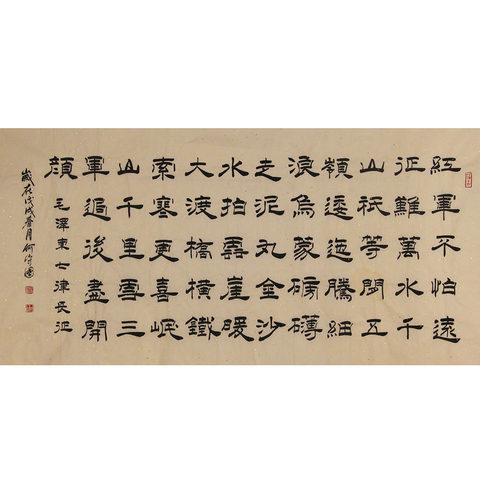 紅軍不怕遠
征難萬水千
山祇等閑五
嶺逶迤騰細
浪烏蒙磅礴
走泥丸金沙
水拍雲崖暖
大渡橋橫鐵
索寒更喜岷
山千里雪三
軍過後盡開
顔
毛澤東七律長征
歲在戊戌春月何